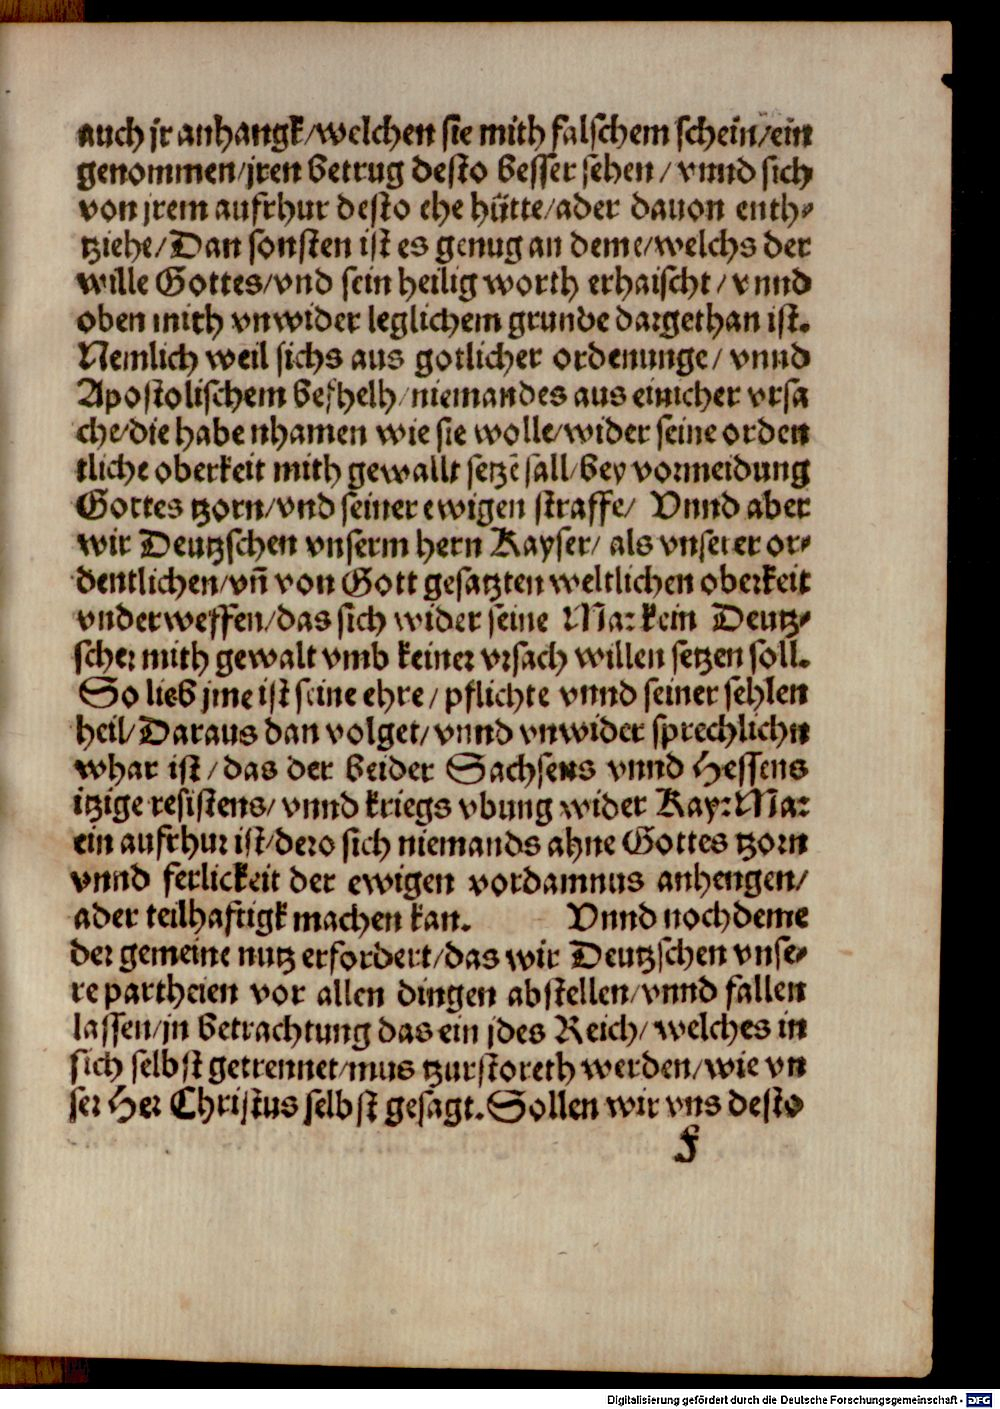 auch jr anhangk/welchen sie mith falschem schein/ein
genommen/jren betrug desto besser sehen/ vnnd sich
von jrem aufrhur desto ehe hütte/ader dauon enth⸗
tziehe/Dan sonsten ist es genug an deme/welchs der
wille Gottes/vnd sein heilig worth erhaischt/ vnnd
oben mith vnwider leglichem grunde dargethan ist.
Nemlich weil sichs aus gotlicher ordenunge/ vnnd
Apostolischem befhelh/niemandes aus einicher vrsa
che/die habe nhamen wie sie wolle/wider seine orden
tliche oberkeit mith gewallt setzē sall/bey vormeidung
Gottes tzorn/vnd seiner ewigen straffe/ Vnnd aber
wir Deutzschen vnserm hern Kayser/ als vnserer or⸗
dentlichen/vñ von Gott gesatzten weltlichen oberkeit
vnderweffen/das sich wider seine Ma: kein Deutz⸗
scher mith gewalt vmb keiner vrsach willen setzen soll.
So lieb jme ist seine ehre/ pflichte vnnd seiner sehlen
heil/Daraus dan volget/ vnnd vnwider sprechlichn
whar ist/das der beider Sachsens vnnd Hessens
itzige resistens/ vnnd kriegs vbung wider Kay: Ma:
ein aufrhur ist/dero sich niemands ahne Gottes tzorn
vnnd ferlickeit der ewigen vordamnus anhengen/
ader teilhaftigk machen kan. Vnnd nochdeme
der gemeine nutz erfordert/das wir Deutzschen vnse⸗
re partheien vor allen dingen abstellen/vnnd fallen
lassen/jn betrachtung das ein jdes Reich/ welches in
sich selbst getrennet/mus tzurstoreth werden/wie vn
ser Her Christus selbst gesagt. Sollen wir vns desto
F
Digitalisierung gefördert durch die Deutsche Forschungsgemeinschaft - DFG